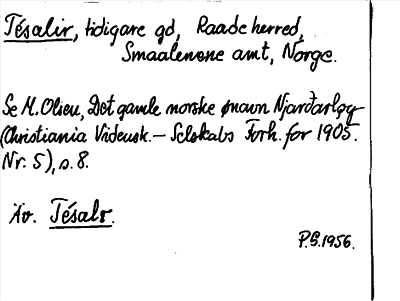 Tésalir, tidigare gd, Raade herred,
Smaalenene amt, Norge.
Se M. Olsen, Det gamle norske ønavn Njarðarlǫg
(Christiania Vidensk.- Selskabs Forh. for 1905.
Nr. 5), s. 8.
Äv. Tésalr.
P.G. 1956.